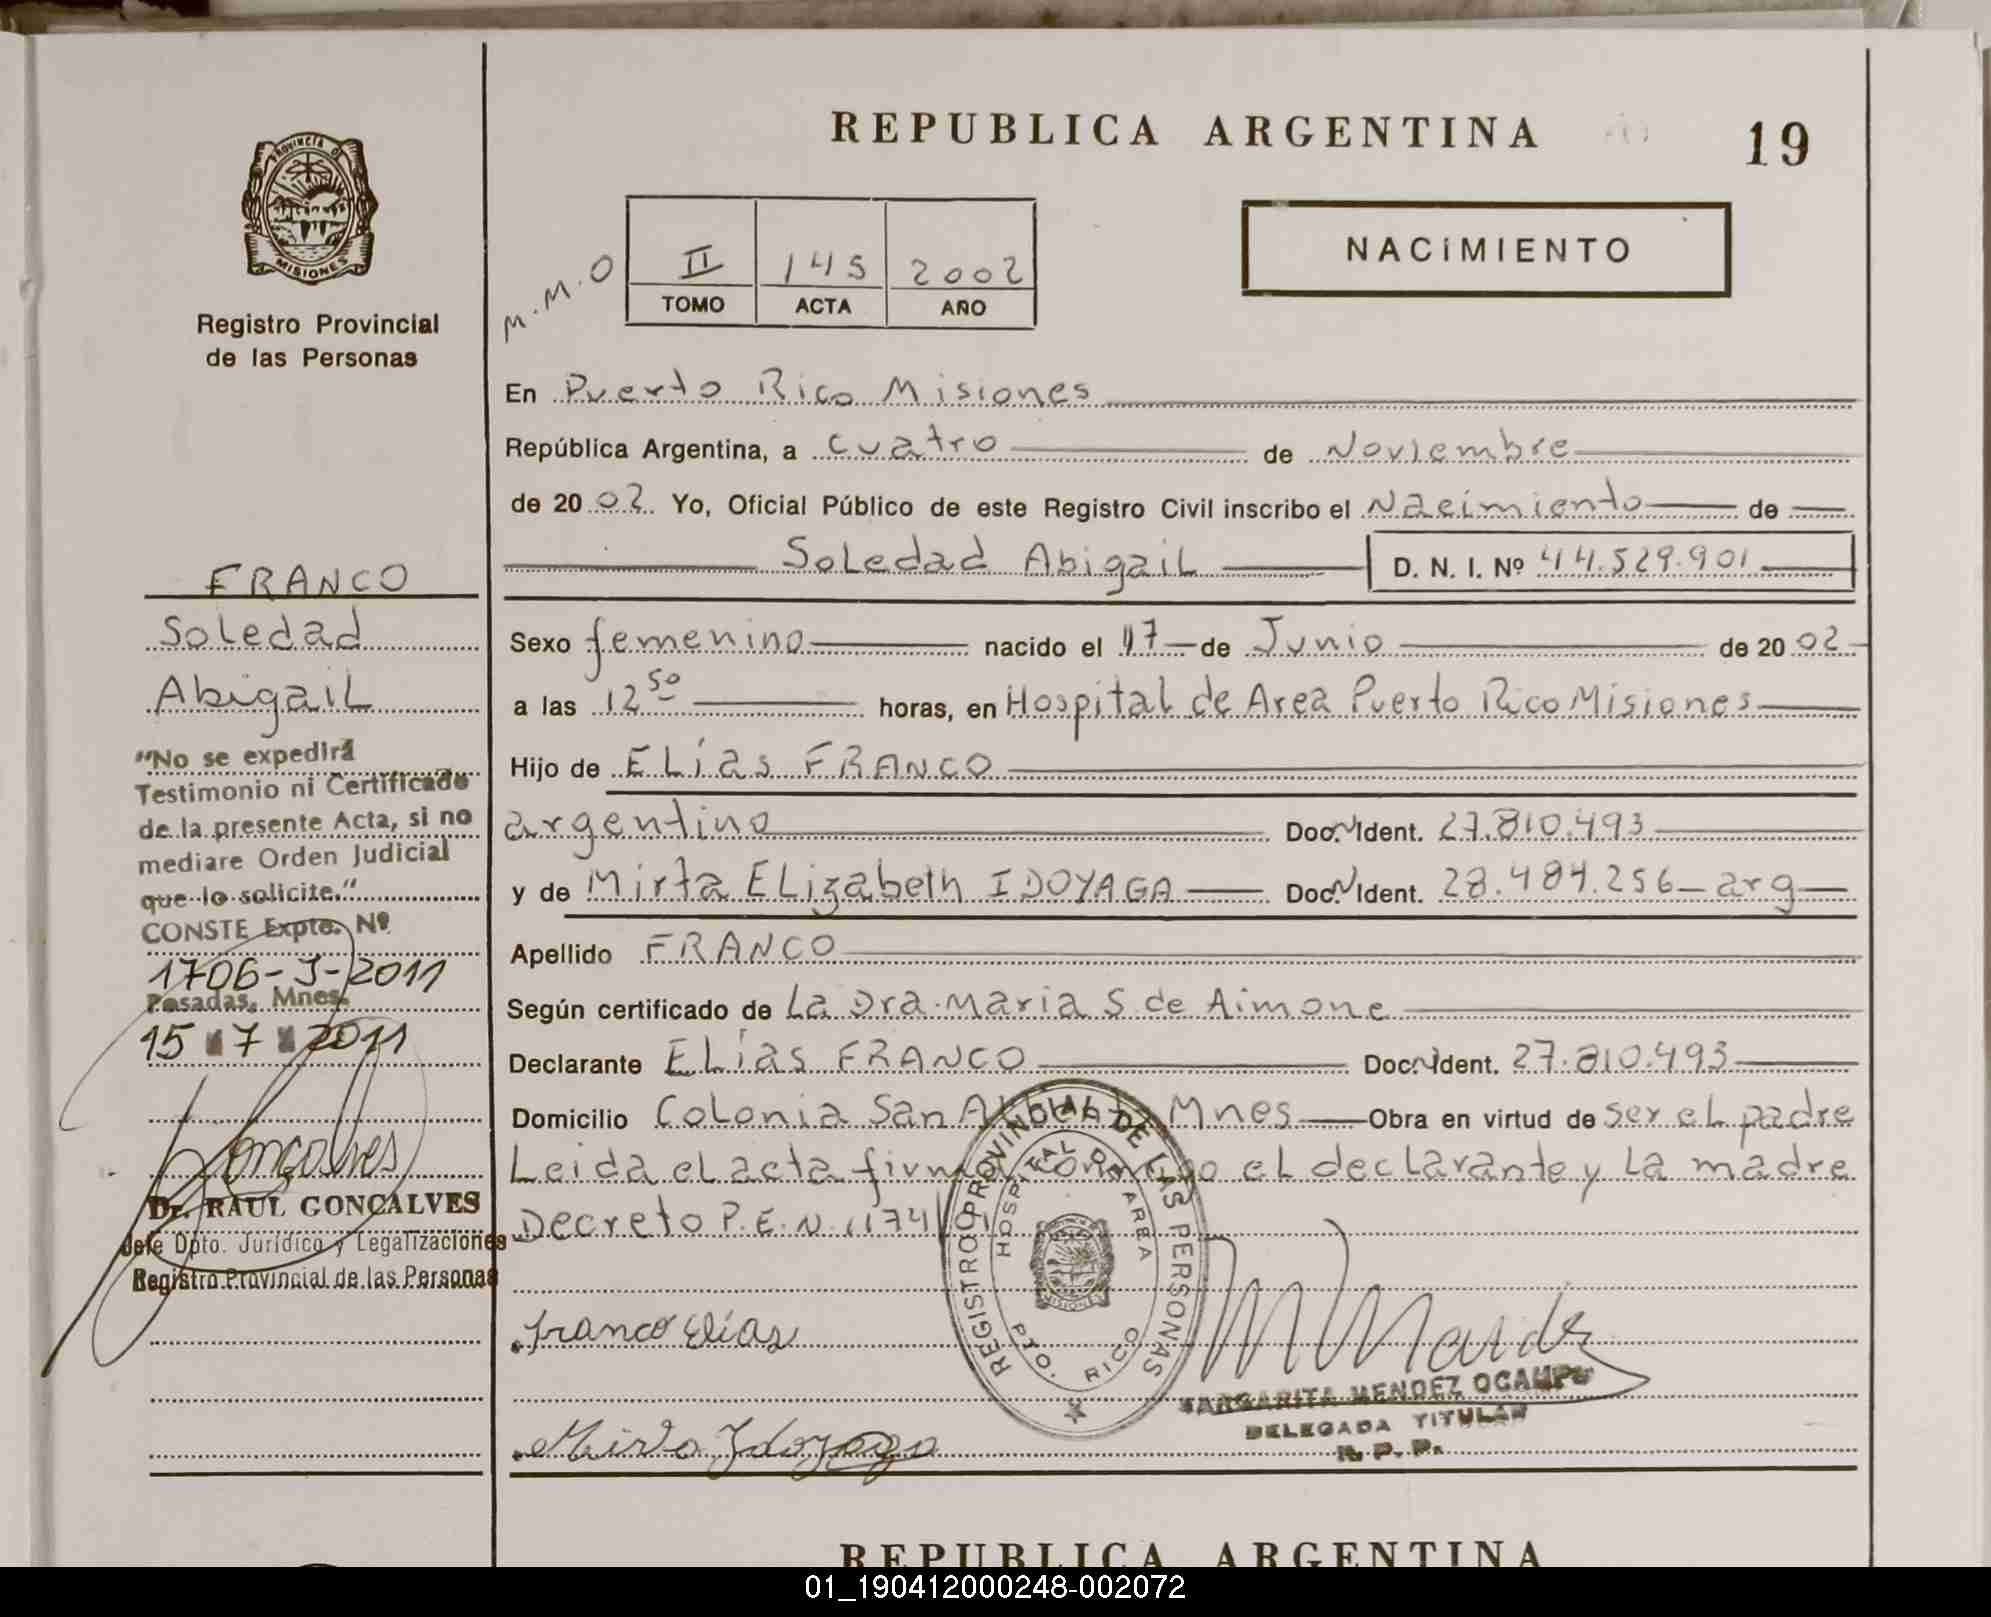 REPUBLICA ARGENTINA
19
PROVINCIA D
MISIONES
Registro Provincial
de las Personas
M.M.O
II 145 2002
TOMO ACTA AÑO
NACIMIENTO
En Puerto Rico Misiones
República Argentina, a cuatro de Noviembre
de 2002 Yo, Oficial Público de este Registro Civil inscribo el Nacimiento de
Soledad Abigail D. N. I. Nº 44.529.901
Sexo femenino nacido el 17 de Junio de 2002
a las 12 50 horas, en Hospital de Area Puerto Rico Misiones
Hijo de ELías FRANCO
argentino Doc. Ident. 27.810.493
y de Mirta ELizabeth IDOYAGA Doc. Ident. 28.484.256 arg
Apellido FRANCO
Según certificado de La Dra. Maria S de Aimone
Declarante ELías FRANCO Doc. Ident. 27.810.493
Domicilio Colonia San Mnes Obra en virtud de ser el padre
Leida el acta firma conmigo el declarante y La madre
Decreto P.E.N. 1174
Franco Elías
Mirta Idoyaga
REGISTRO PROVINCIAL DE LAS PERSONAS
HOSPITAL DE AREA
PTO. RICO
MISIONES
MARGARITA MENDEZ OCAMPO
DELEGADA TITULAR
R. P. P.
FRANCO
Soledad
Abigail
"No se expedirá
Testimonio ni Certificado
de la presente Acta, si no
mediare Orden Judicial
que lo solicite."
CONSTE Expte. Nº
1706-J-2011
Posadas, Mnes.
15 7 2011
Gonçalves
Dr. RAUL GONÇALVES
Jefe Dpto. Jurídico y Legalizaciones
Registro Provincial de las Personas
REPUBLICA ARGENTINA
01_190412000248-002072